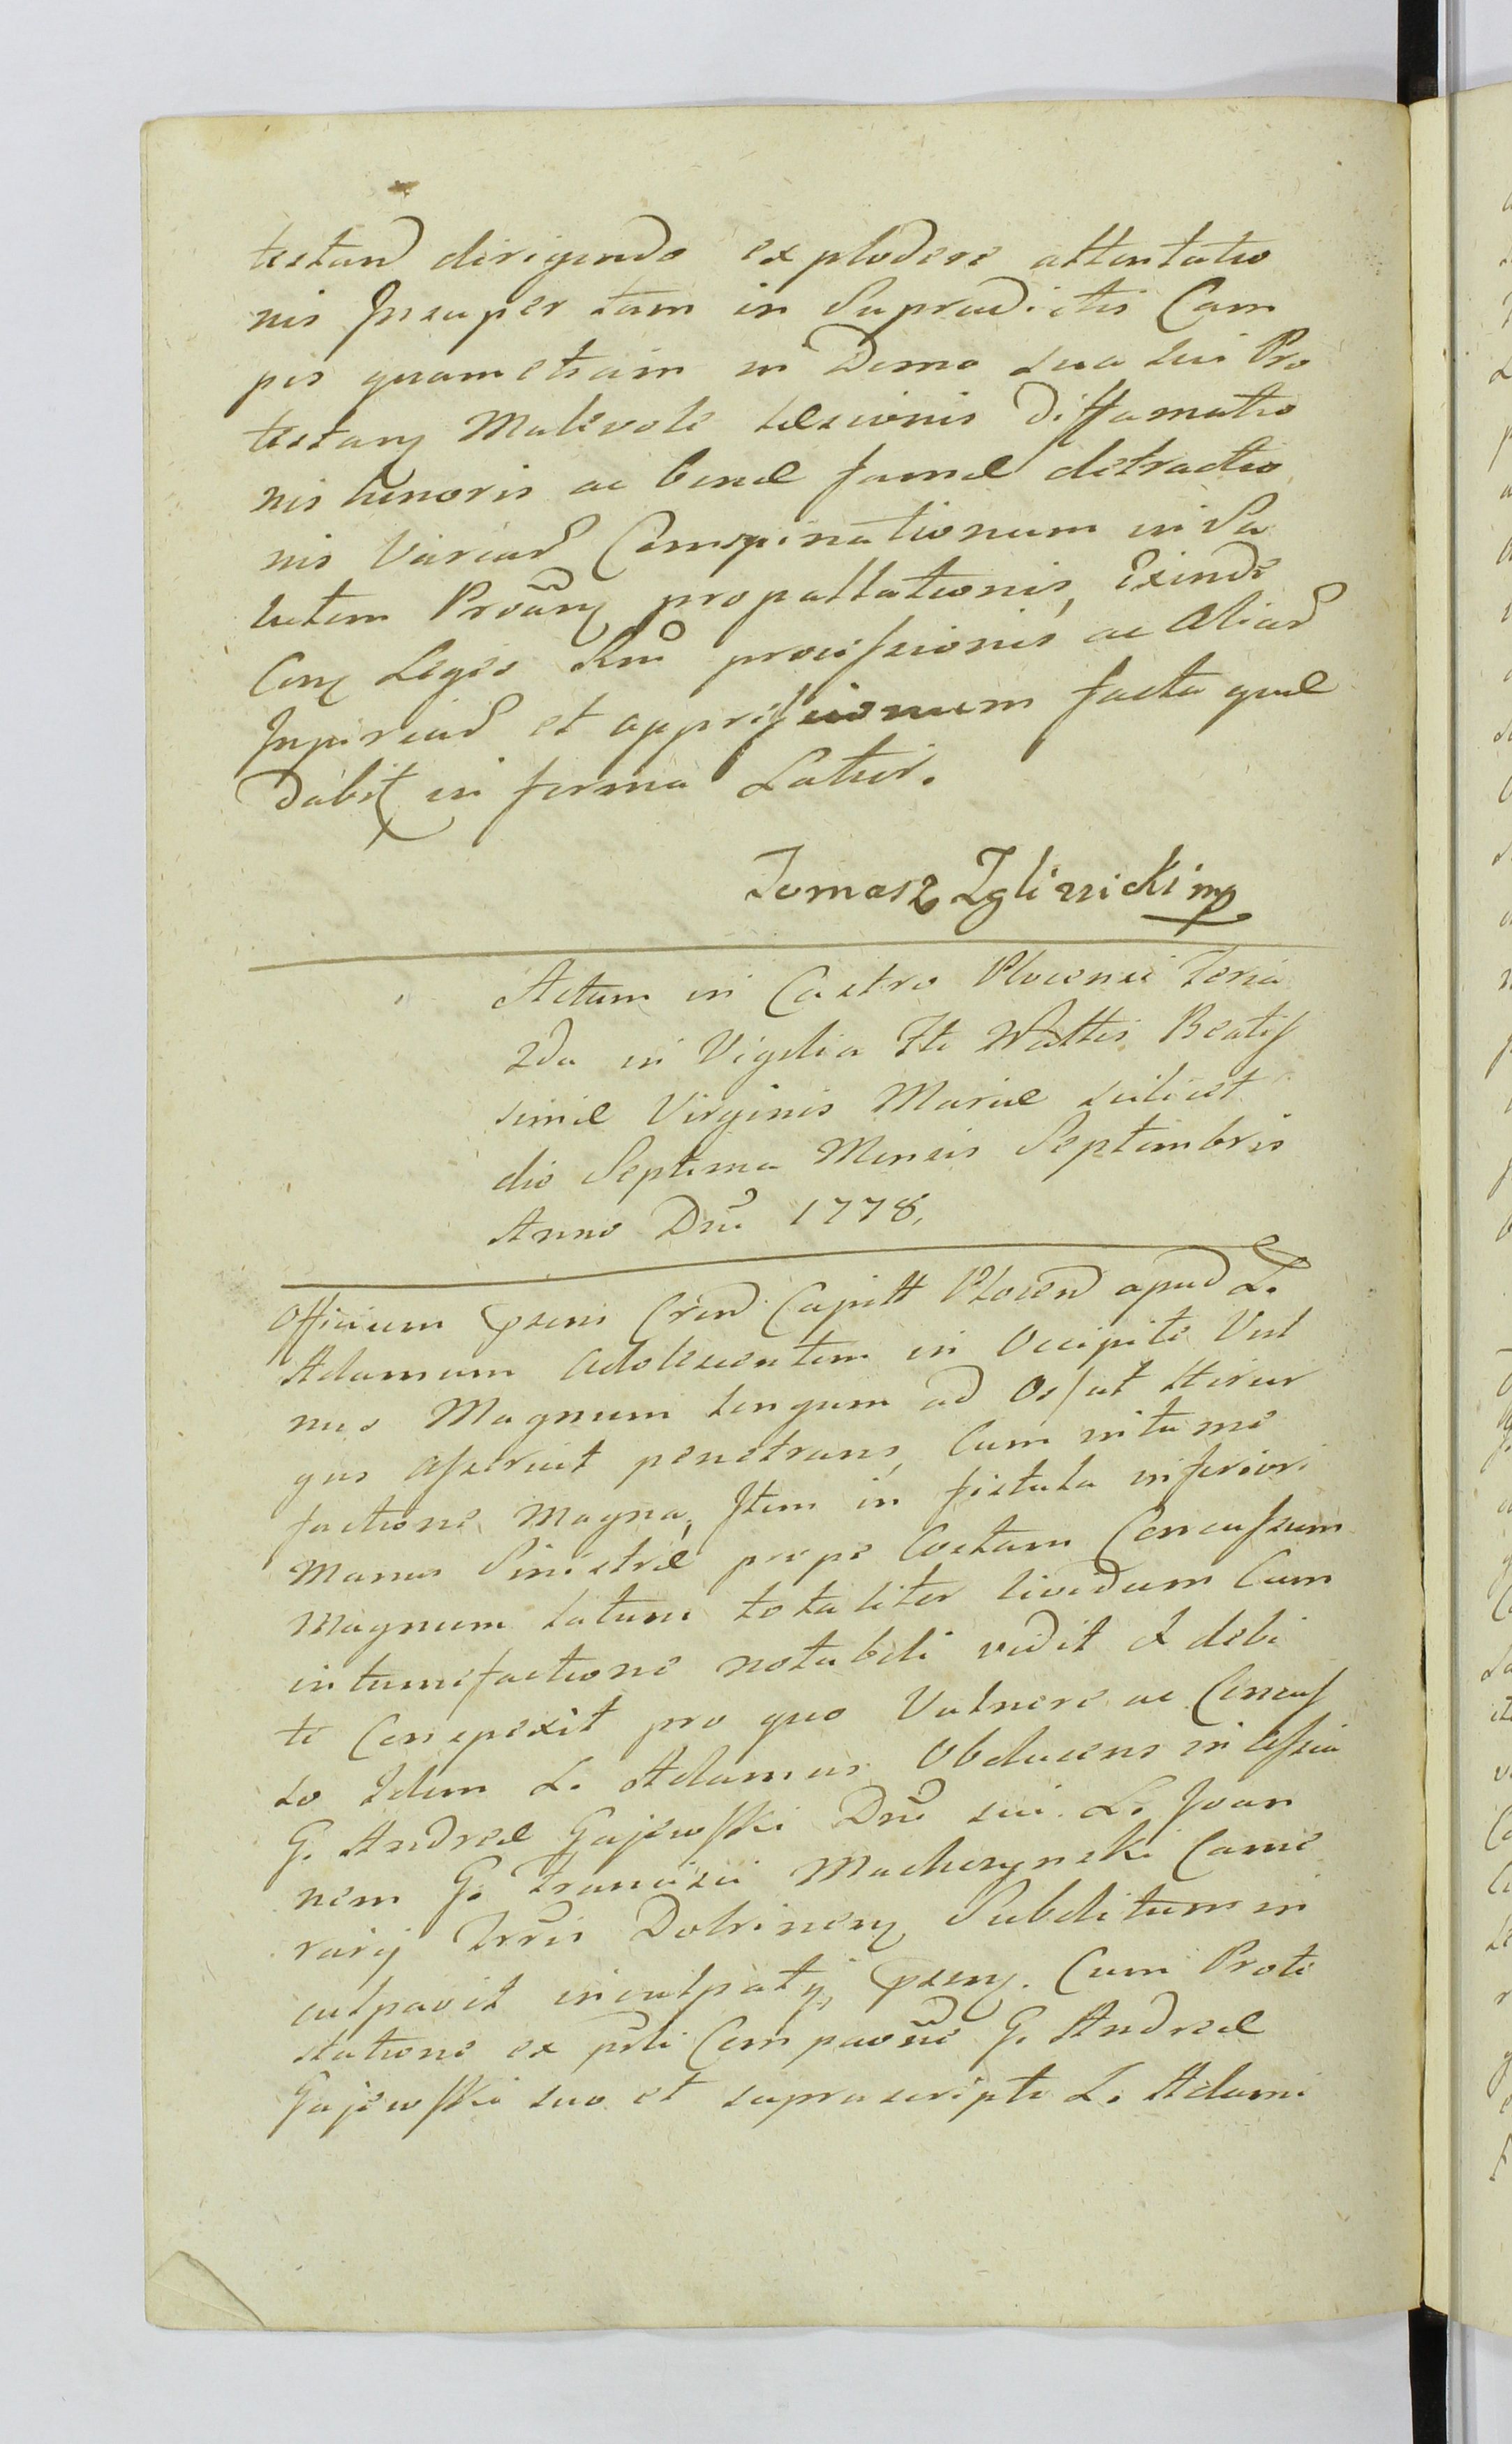 testand dirigendo explodere attentatio
nis Insuper tam in Supradictis Cam
pis quam etiam in Domo sua sui Pro
testanꝭ Malevole læsionis diffamatio
nis honoris ac bonæ famæ detractio
nis Variarꝭ Conspirationum in Sa
lutem Proanꝭ propallationis, Exinde
Conꝭ Leges Rni processionis ac Aliarꝭ
Injuriarꝭ et oppressionum facta quæ
dabitꝭ in forma Latior.
Tomasz Zglinicki mp
Actum in Castro Plocensi Feria
2da in Vigilia Fti Nattis Beatis
simæ Virginis Mariæ scilicet
die Septima Mensis Septembris
Anno Dni 1778.
Officium præns Cxend Capitt Plocend apud L.
Adamum adolescentem in Occipite Vul
nus Magnum longum ad Os, ut Hirur
gus asseruit penetrans, Cum intume
factione Magna, Item in fistula inferiori
Manus Sinistræ prope Costam Concussum
Magnum latum totaliter lividum Cum
intumefactione notabili vidit et debi
te Conspexit pro quo Vulnere ac Concus
so Idem L. Adamus Obducens in assia
G. Andreæ Gajewski Dni sui L. Joan
nem G. Francisci Machczynski Came
rarij Trris Dobrinenꝭ Subditum in
culpavit inculpatqꝭ, præsenꝭ. Cum Prote
statione ex prsli Comparone G. Andreæ
Gajewski suo et suprascripti L. Adami